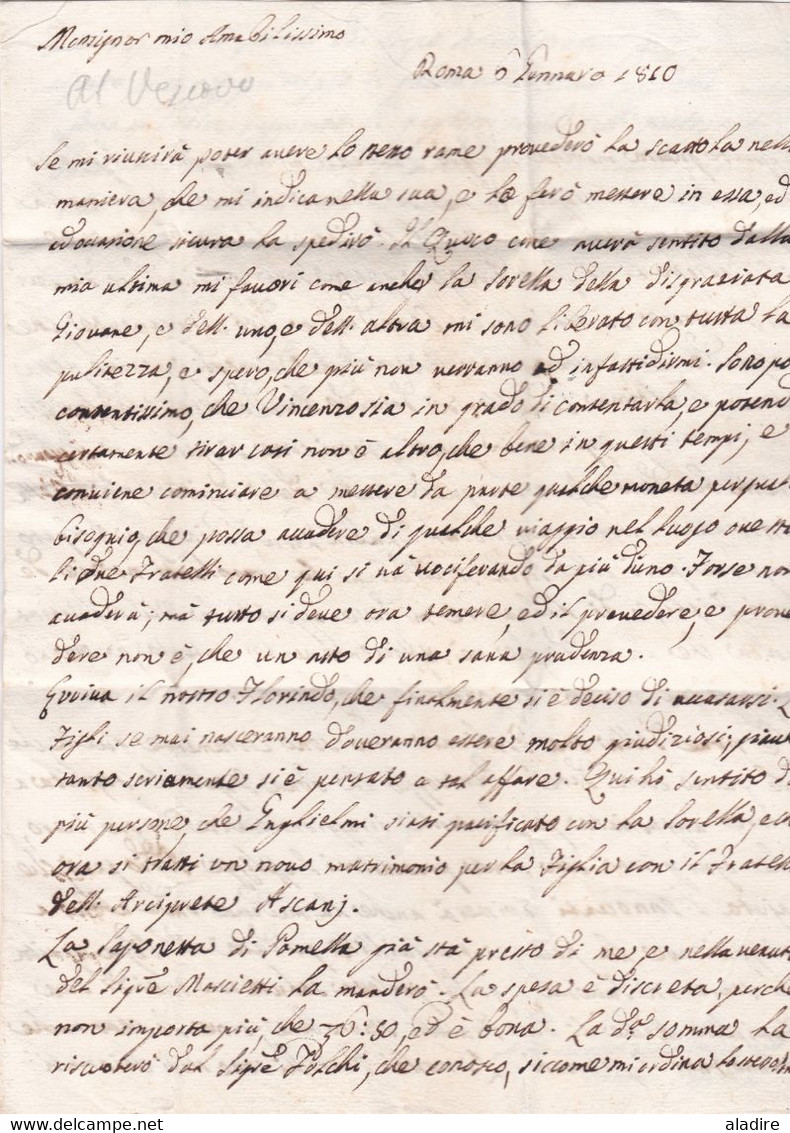 Monsignor mio Amabilissimo
Roma 6 Gennaro 1810
Al Vescovo
Se mi riuscirà poter avere lo stesso rame provederò la scattola nella
maniera, che mi indica nella sua, e la ferò mettere in essa, ed
ad occasione sicura la spedirò. Il come averà sentito dalla
mia ultima mi favorì come anche la Sorella della disgraziata
Giovane, e dell'uno, e dell'altra mi sono liberato con tutta la
pulitezza, e spero, che più non verranno ad infastidirmi. Sono poi
contentissimo, che Vincenzo sia in grado di contentarla, e potendo
certamente tirar così non è altro, che bene in questi tempi, e
conviene cominciare a mettere da parte qualche moneta per qual
bisognio, che possa accadere di qualche viaggio nel luogo ove sto
li due Fratelli come qui si và vociferando da più d'uno. Forse non
accaderà; mà tutto si deve ora temere, ed il prevedere, e prove
dere non è, che un atto di una sana prudenza.
Evviva il nostro Florindo, che finalmente si è deciso di accasarsi.
Figli se mai nasceranno doveranno essere molto giudiziosi; giac
tanto seriamente si è pensato a tal affare. Qui hò sentito d
più persone, che Guglielmi siasi pacificato con la Sorella, e c
ora si tratti un novo matrimonio per la Figlia con il Fratel
dell'Arciprete Ascanj.
La Saponetta di Pomella già stà presso di me, e nella venut
del Sigre Mascietti la manderò. La spesa è discreta, perche
non importa più, che :50, ed è bona. La da somma la
riscuoterò dal Sigre Folchi, che conosco, siccome mi ordina lo stesso
delcampe.net
aladire